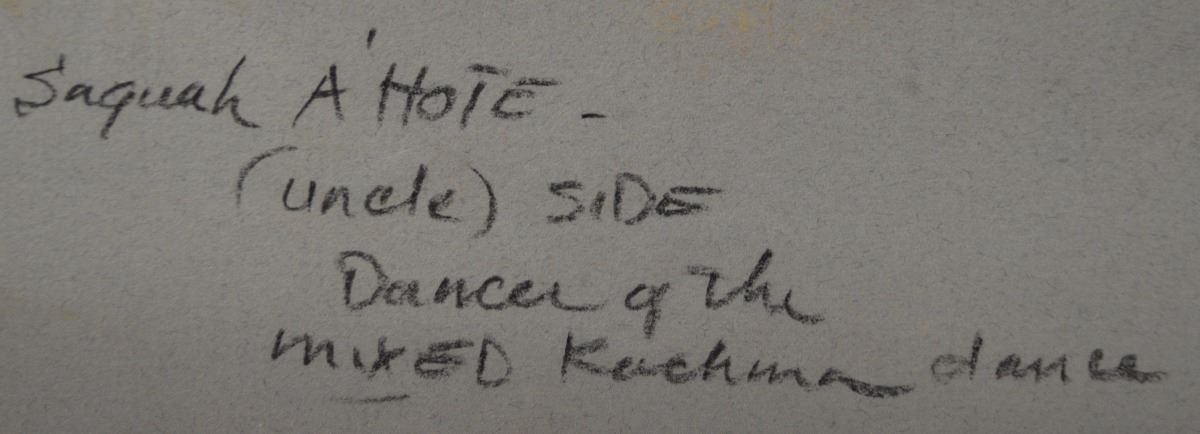 Saquah A'HOTE -
(uncle) SIDE
Dancer of the
MIXED Kachina dance